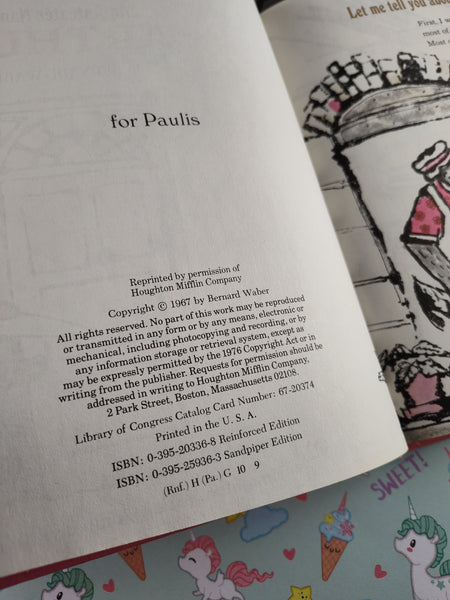 for Paulis
Reprinted by permission of
Houghton Mifflin Company
Copyright © 1967 by Bernard Waber
All rights reserved. No part of this work may be reproduced
or transmitted in any form or by any means, electronic or
mechanical, including photocopying and recording, or by
any information storage or retrieval system, except as
may be expressly permitted by the 1976 Copyright Act or in
writing from the publisher. Requests for permission should be
addressed in writing to Houghton Mifflin Company,
2 Park Street, Boston, Massachusetts 02108.
Library of Congress Catalog Card Number: 67-20374
Printed in the U. S. A.
ISBN: 0-395-20336-8 Reinforced Edition
ISBN: 0-395-25936-3 Sandpiper Edition
(Rnf.) H (Pa.) G 10 9
Let me tell you
First, I
most of
Most
SWEET!